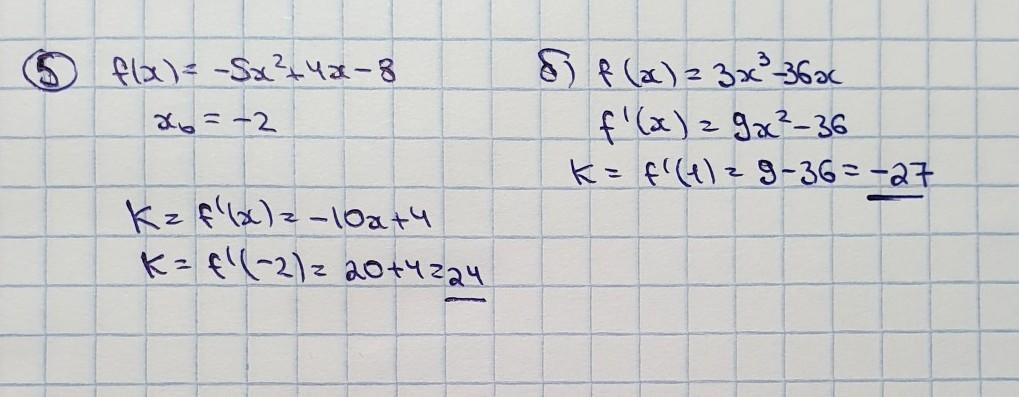 5 f(x) = -5x²+4x-8
x₀ = -2
K = f'(x) = -10x+4
K = f'(-2) = 20+4=24
б) f(x) = 3x³-36x
f'(x) = 9x²-36
K = f'(1) = 9-36 = -27